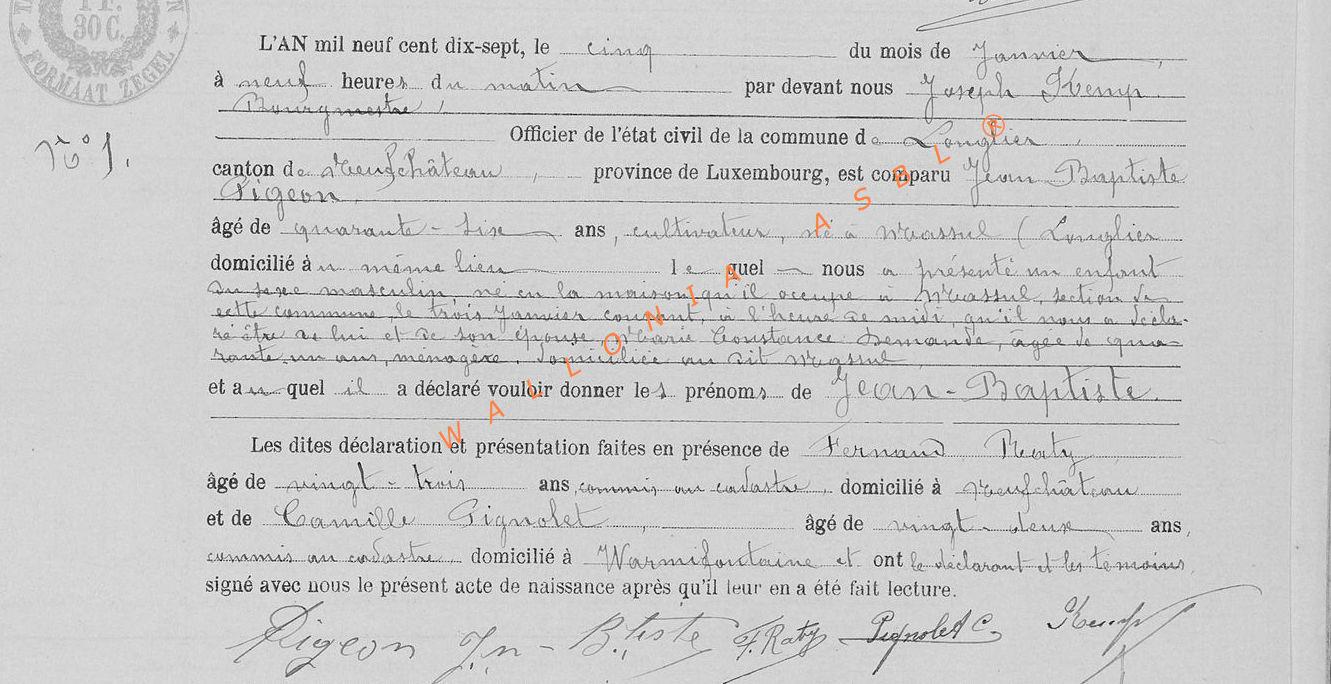 30 C.
FORMAAT ZEGEL
L'AN mil neuf cent dix-sept, le cinq du mois de Janvier,
à neuf heures du matin par devant nous Joseph Kemp
Bourgmestre,
Officier de l'état civil de la commune de Longlier,
N° 1.
canton de Neufchâteau, province de Luxembourg, est comparu Jean Baptiste
Pigeon,
âgé de quarante-six ans, cultivateur, né à Massul (Longlier
domicilié au même lieu lequel nous a présenté un enfant
du sexe masculin, né en la maison qu'il occupe à Massul, section de
cette commune, le trois Janvier courant, à l'heure de midi, qu'il nous a décla-
ré être de lui et de son épouse, Marie Constance Demande, âgée de qua-
rante un ans, ménagère, domiciliée au dit Massul
et auquel il a déclaré vouloir donner les prénoms de Jean-Baptiste.
Les dites déclaration et présentation faites en présence de Fernand Raty,
âgé de vingt-trois ans, commis au cadastre, domicilié à Neufchâteau
et de Camille Pignolet, âgé de vingt-deux ans,
commis au cadastre domicilié à Warmifontaine et ont le déclarant et les témoins
signé avec nous le présent acte de naissance après qu'il leur en a été fait lecture.
Pigeon Jn-Btiste F. Raty Pignolet C. Kemp
WALLONIA ASBL ®